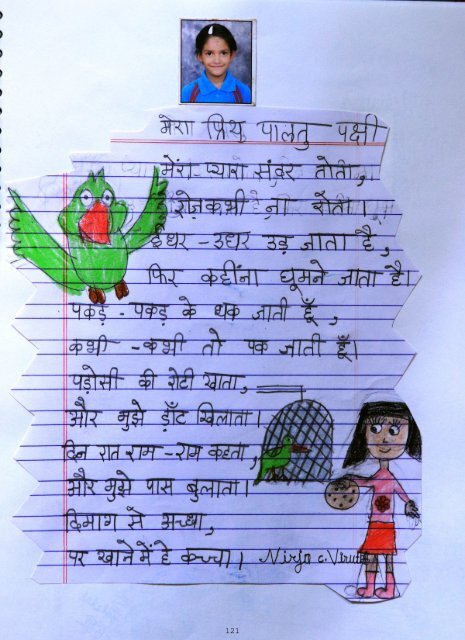 मेरा प्रिय पालतु पक्षी
मेरा-प्यारा सुंदर तोता,
रोज़कभी है ना रोता।
ईधर-उधर उड़ जाता है,
फिर कहींना घूमने जाता है।
पकड़-पकड़ के थक जाती हूँ,
कभी-कभी तो पक जाती हूँ।
पड़ोसी की रोटी खाता,
और मुझे डाँट खिलाता।
दिन रात राम-राम कहता,
और मुझे पास बुलाता।
दिमाग से अच्छा,
पर खाने में है कच्चा। Nirja C.
121